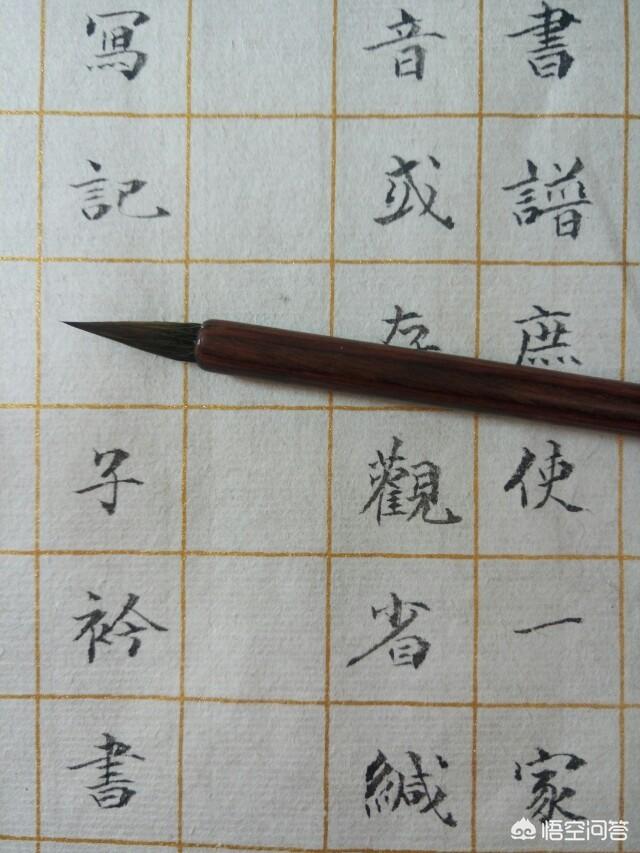 書譜庶使一家
音或存觀省緘
寫記子衿書
悟空问答